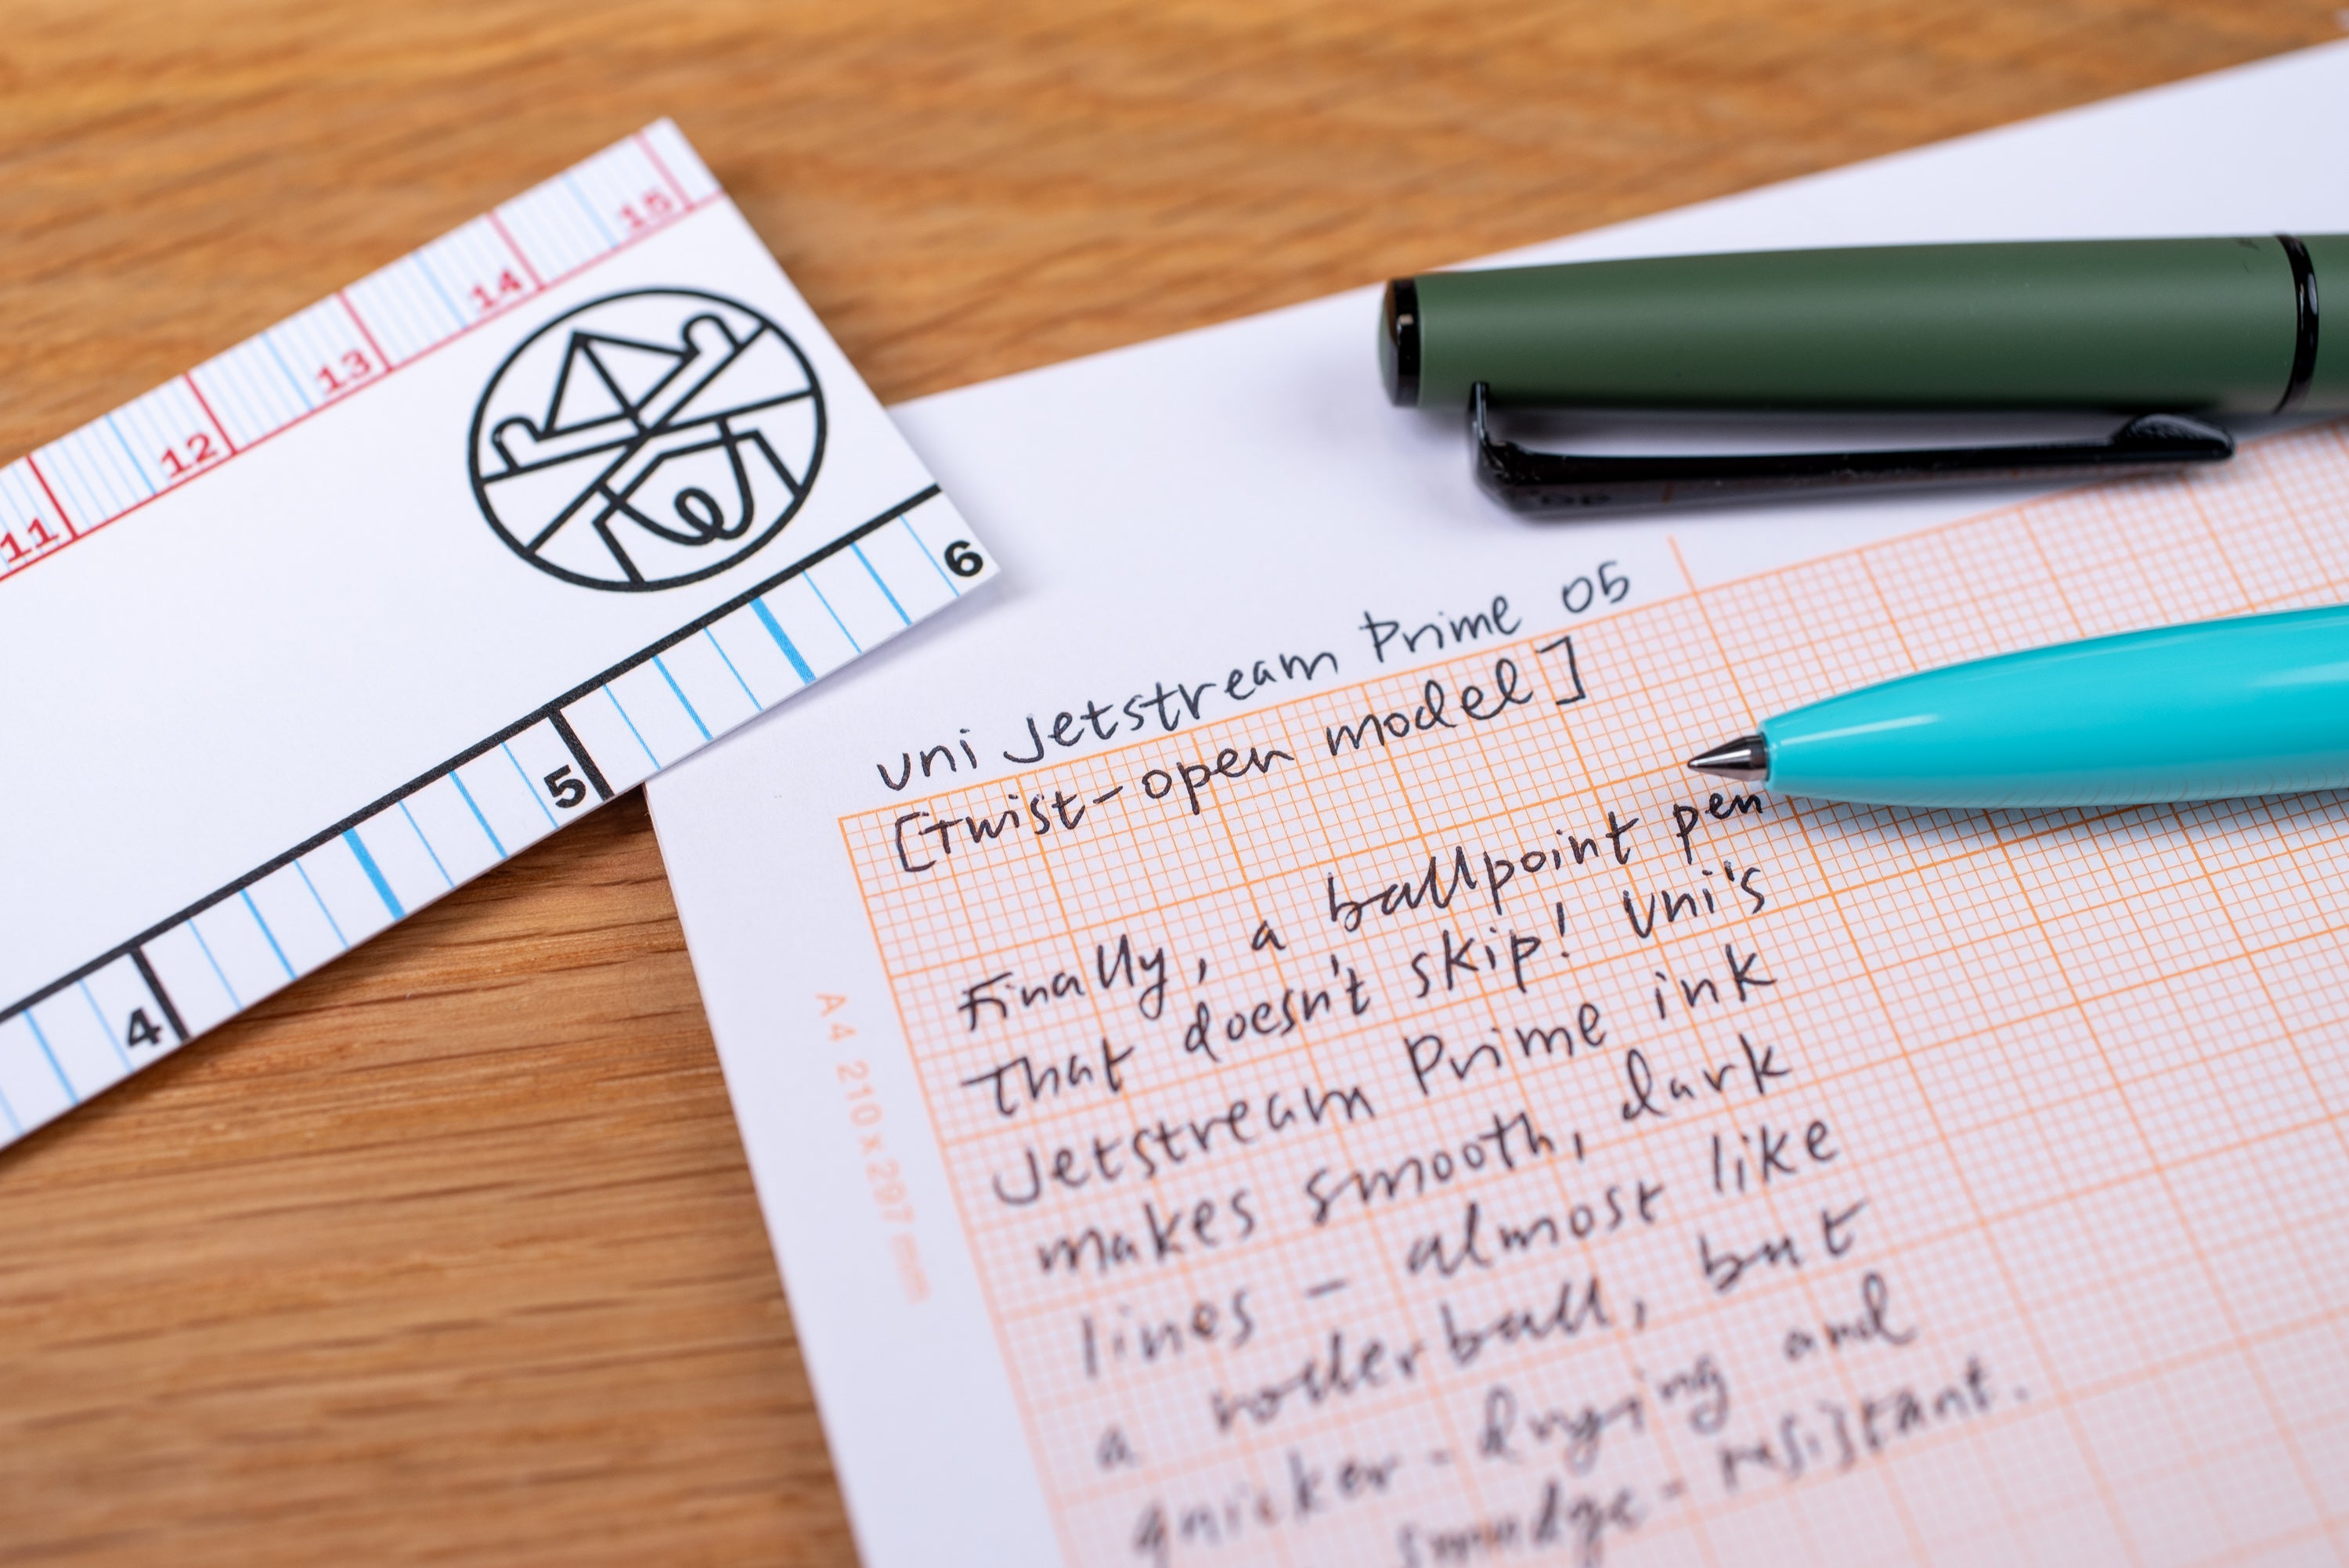 11 12 13 14 15
4 5 6
uni Jetstream Prime 05
[Twist-open model]
Finally, a ballpoint pen
that doesn't skip! Uni's
Jetstream Prime ink
makes smooth, dark
lines - almost like
a rollerball, but
quicker-drying and
smudge-resistant.
A4 210 x 297 mm